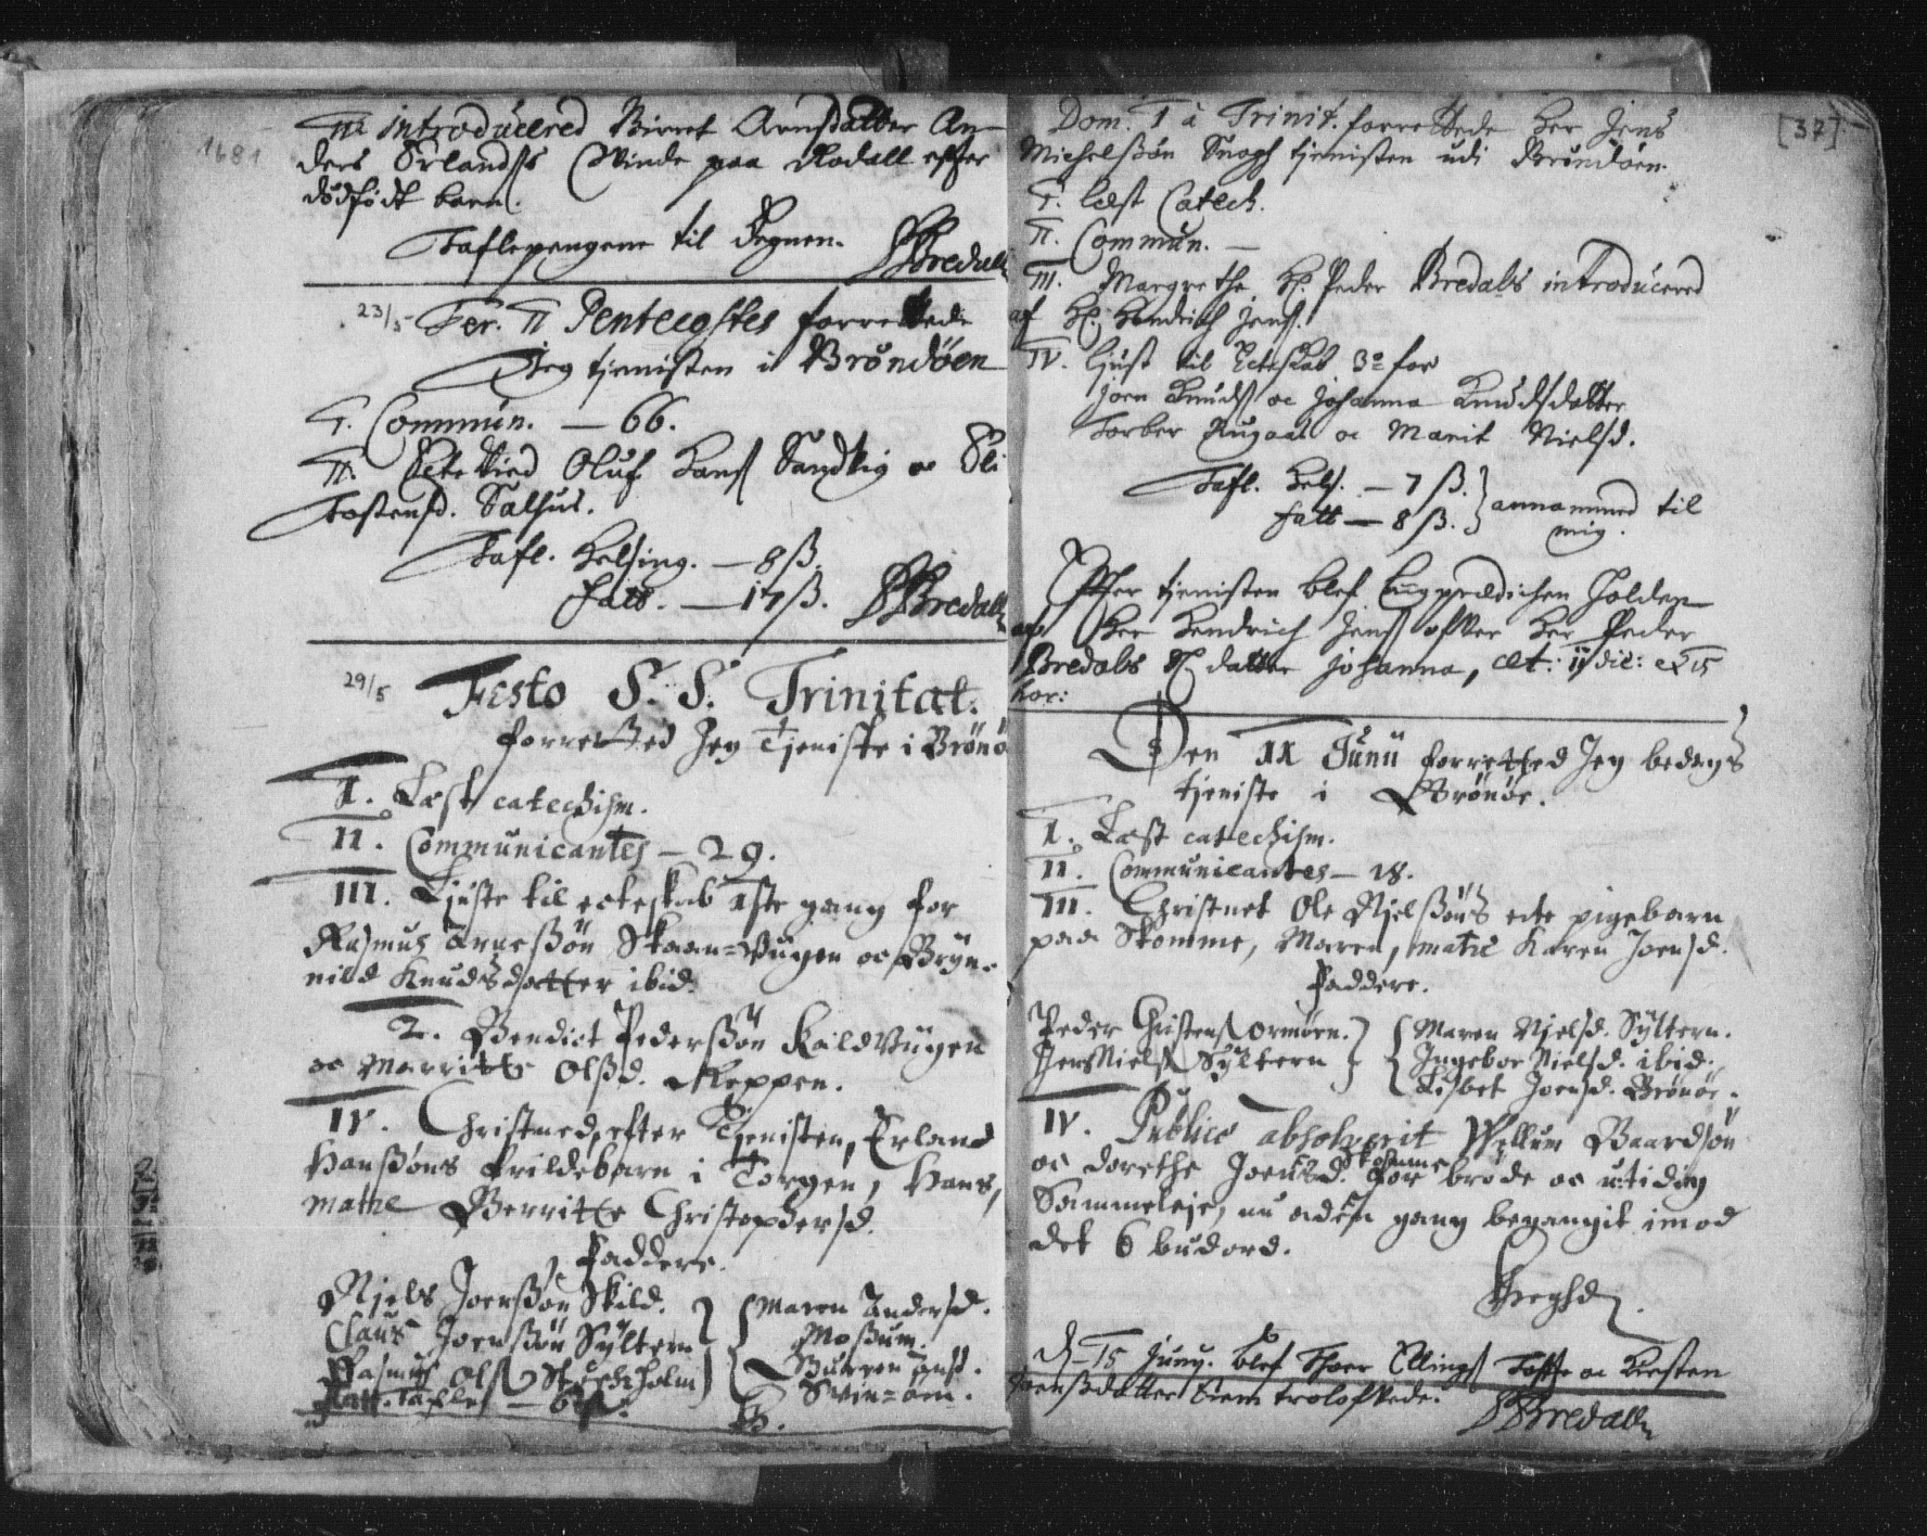 1681
III introducered Birret Arnsdatter An-
ders Erlandss Qvinde paa Rodall efter
dødfødt barn.
Taflepengene til Degnen.
PBredall
23/5 Fer. II Pentecostes forrettede
Jeg tjenisten i Brøndøen
I. Commun. — 66.
II. Ecte Vied Oluf Hanss Sandvig oc Eli
Tostensd. Salhus.
Tafl. Helsing. — 8 ß.
fatt. — 17 ß. PBredall
29/5 Festo S. S. Trinitat.
forretted Jeg Tjeniste i Brønø
I. Læst catechism.
II. Communicantes — 29.
III. Liuste til ecteskab 1ste gang for
Rasmus Arnesøn Skaan=Vugen oc Bryn-
nild Knudsdotter ibid.
2. Bendict Pedersøn Kaldvugen
oc Marritte Olsd. Reppen.
IV. Christned efter Tjenisten, Erland
Hansøns frildebarn i Torgen, Hans,
matre Berritte Christophersd.
Faddere.
Njels Joensøn Skild. } { Maren Andersd.
Claus Joensøn Syltern Moßum.
Rasmus Olss Storcholm } {
Svin=øen.
Fatt. Tafle —
[37]
Dom. I à Trinit. forrettede Her Jens
Michelsøn Snogh tjenisten udi Brøndøen.
I. læst Catech.
II. Commun. —
III. Margrethe H. Peder Bredals introducered
af H. Hendrich Jenss.
IV. liust til Ecteskab 3º for
Joen Knudss oc Johanna Knudsdatter
Torber Rugaas oc Marit Nielsd.
Tafl. Hels. — 7 ß. } annammed til
fatt — 8 ß. } mig.
Efter tjenisten blef Liigprædichen holden
af Her Hendrich Jenss ofver Her Peder
Bredals S. datter Johanna, æt: 11 die: et 15
hor:
Den 11 Junii forretted Jeg bedags
tjeniste i Brønøe.
I. Læst catechism.
II. Communicantes — 18.
III. Christnet Ole Njelsøns ecte pigebarn
paa Skomme, Maren, matre Karen Joensd.
Faddere.
Peder Christenss Ormøen. } { Maren Njelsd. Syltern.
Niels Syltern } { Ingebor Nielsd. ibid.
{ Lisbet Joensd. Brønøe.
IV. Publice absolverit Phellum Baardsøn
oc dorethe Joensd. Skomme for brøde oc utidig
Sammeleje, nu anden gang begangit imod
det 6 budord.
d. 15 Juny. blef Thoer Ellingss Toft oc Kirsten
Joensdatter Siem trolofvede.
PBredall